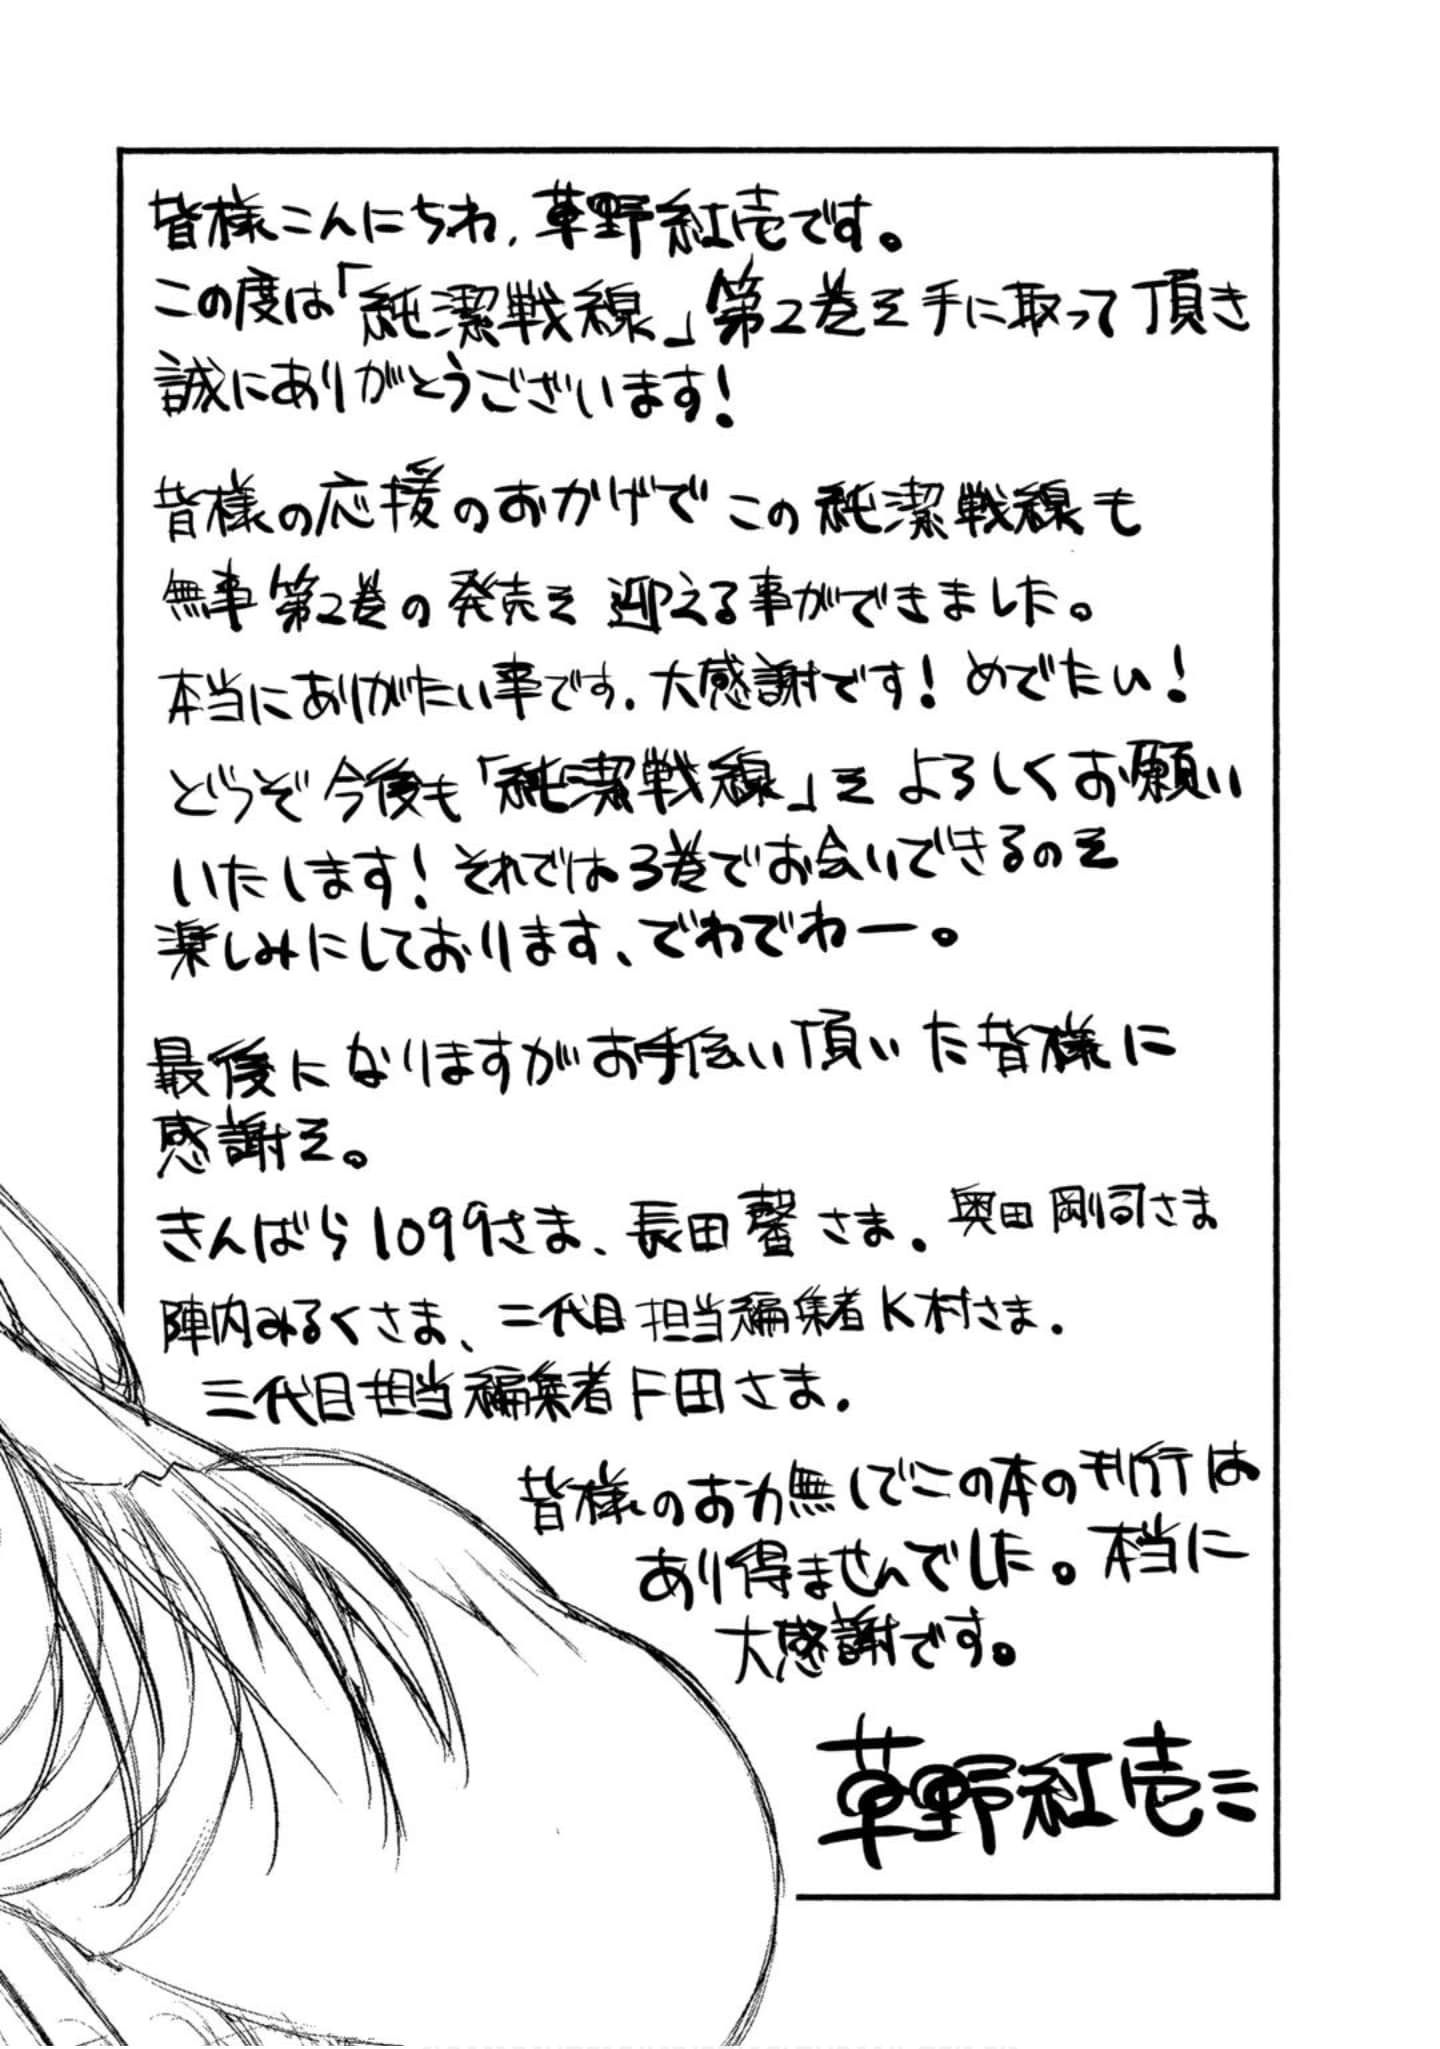 皆様こんにちわ、草野紅壱です。
この度は「純潔戦線」第2巻を手に取って頂き
誠にありがとうございます!
皆様の応援のおかげでこの純潔戦線も
無事第2巻の発売を迎える事ができました。
本当にありがたい事です。大感謝です!めでたい!
どうぞ今後も「純潔戦線」をよろしくお願い
いたします!それでは3巻でお会いできるのを
楽しみにしております、でわでわー。
最後になりますがお手伝い頂いた皆様に
感謝を。
きんばら1099さま、長田馨さま。奥田剛司さま
陣内みるくさま、二代目担当編集者K村さま.
三代目担当編集者F田さま.
皆様のお力無しでこの本の刊行は
あり得ませんでした。本当に
大感謝です。
草野紅壱